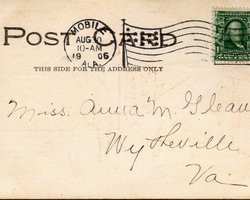 POST CARD
MOBILE
AUG 10
10-AM
1906
ALA.
THIS SIDE FOR THE ADDRESS ONLY
Miss. Anna M. Gleav
Wytheville
Va.